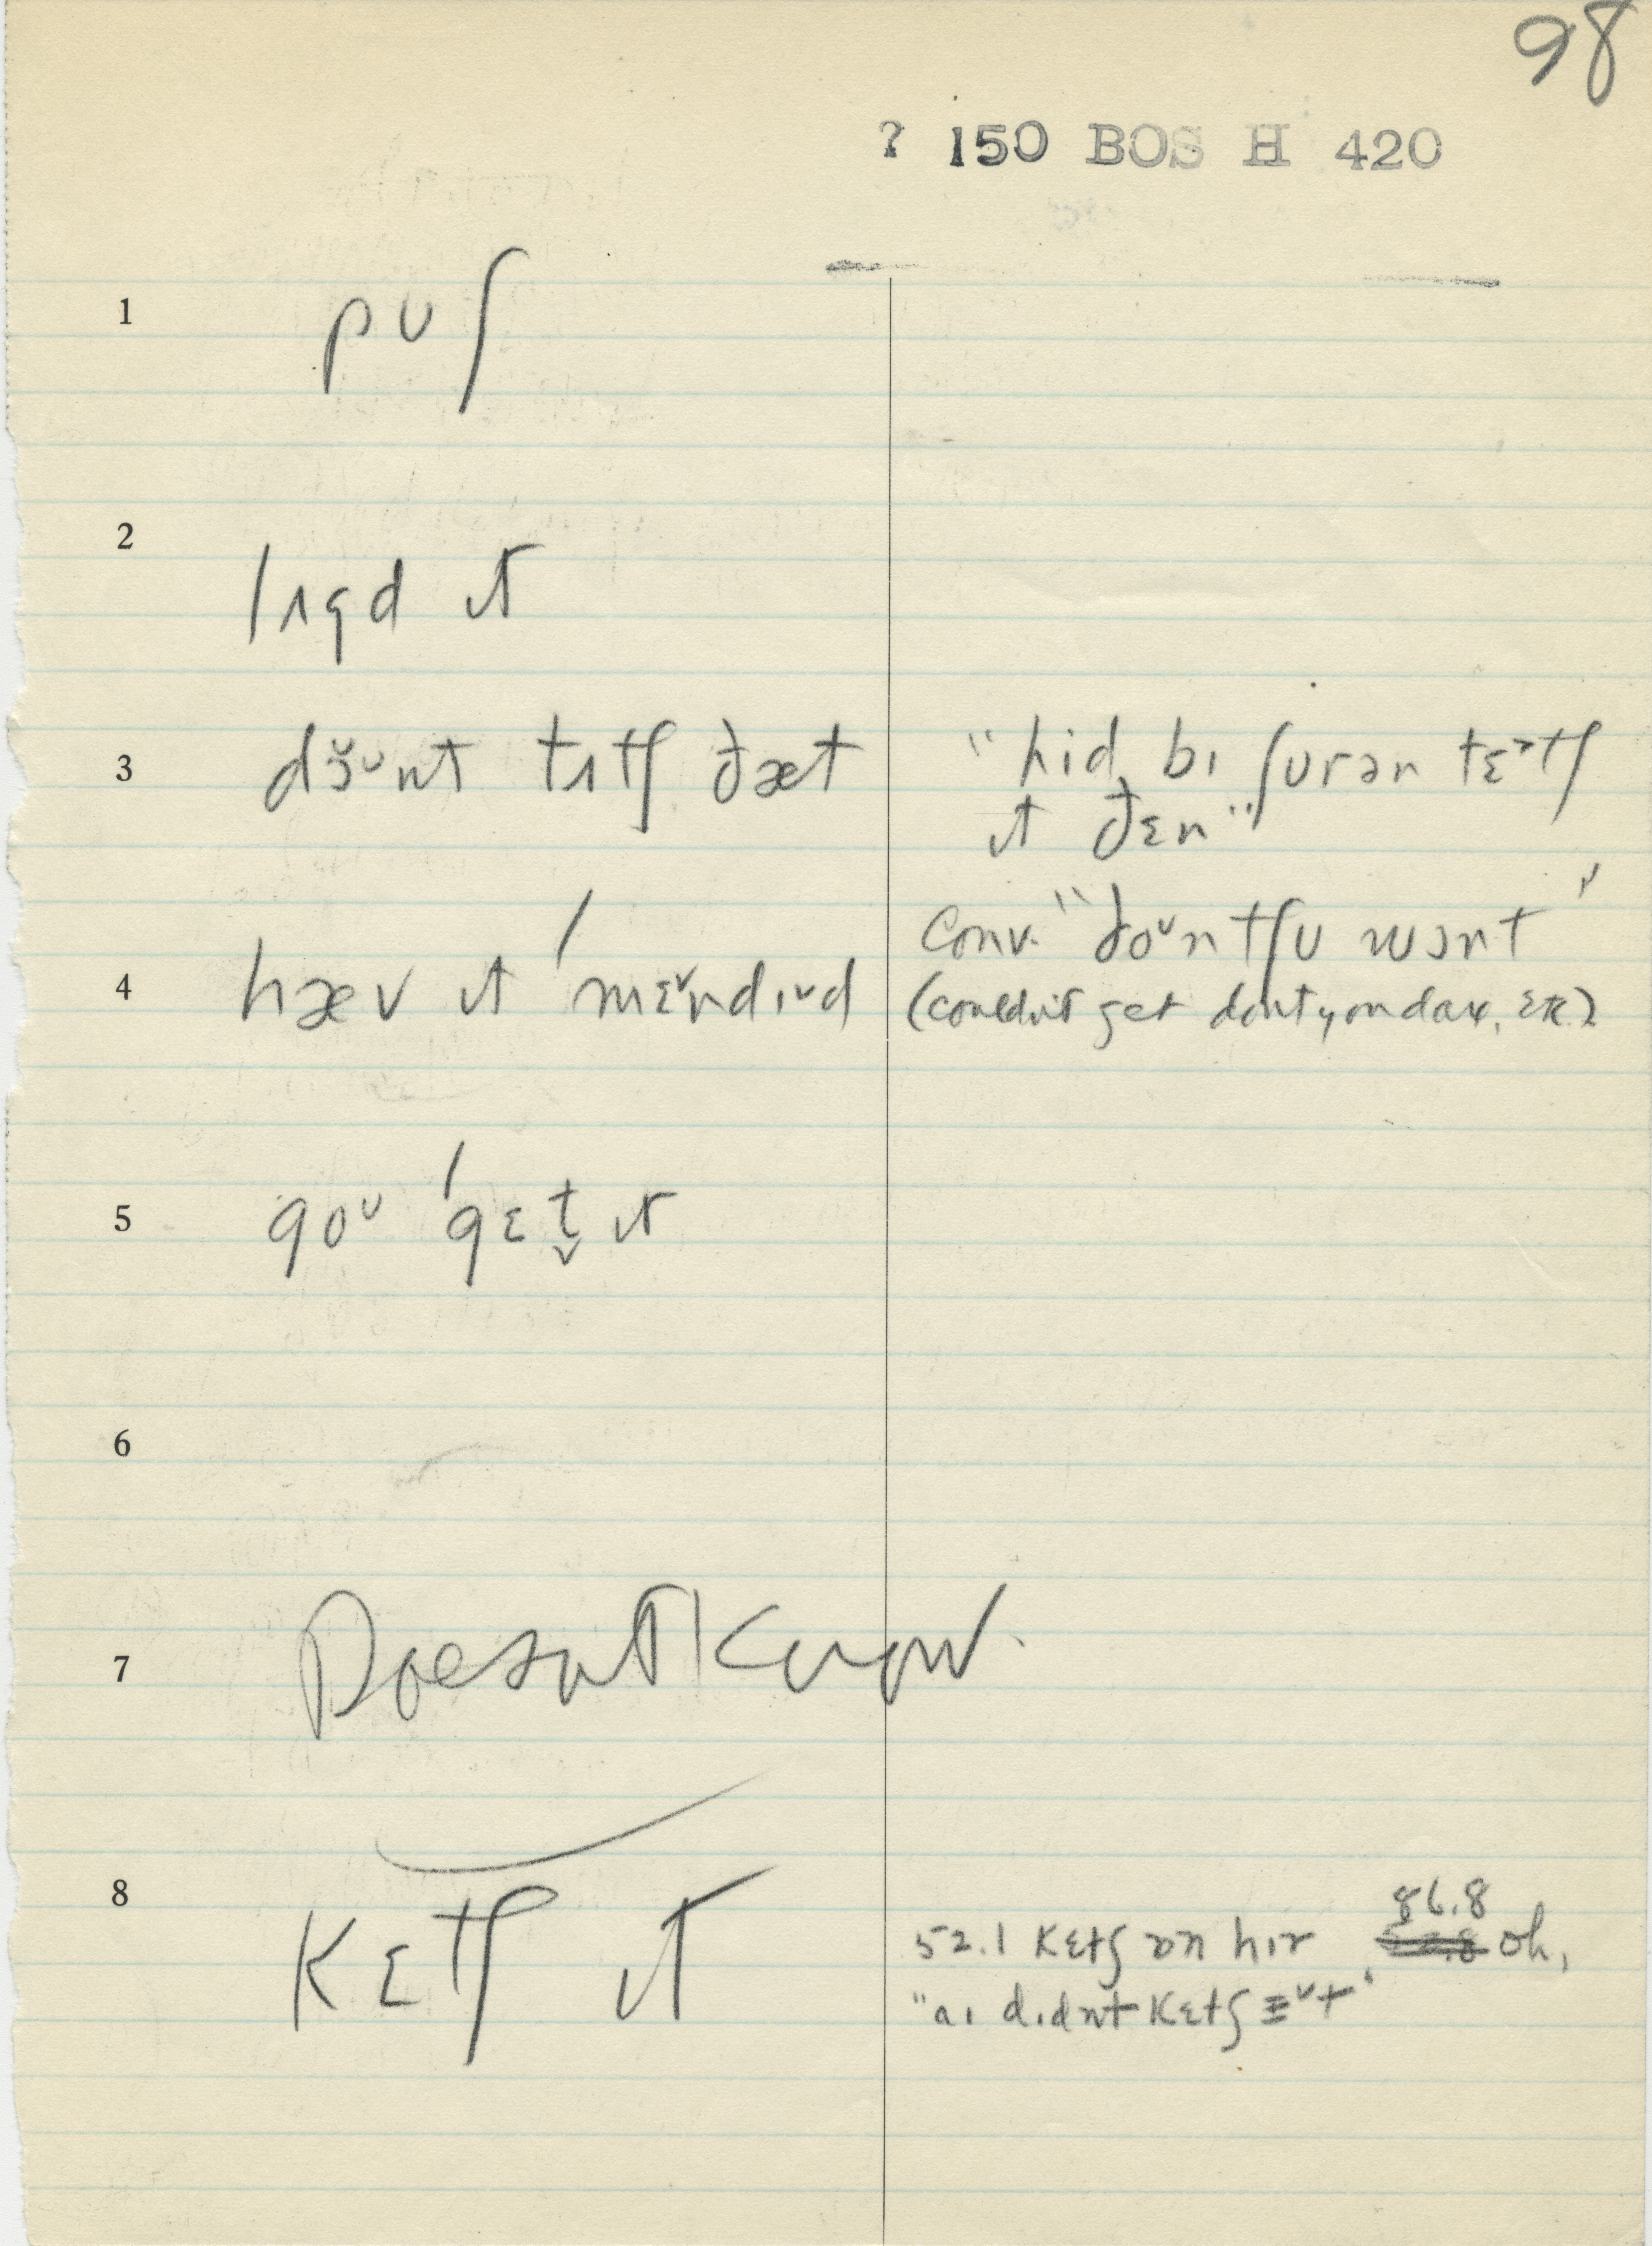 98
? 150 BOS H 420
1 pʊʃ
2 lʌgd ɪt
3 dɜ̆ᵘnt tʌtʃ ðæt
"hid bɪ ʃʊrən tɛᵊtʃ
ɪt ðɛn"
4 hæv ɪt ˈmɛ˅ndɪ˅d
Conv. "doᵘntʃʊ wɔnt"
(couldn't get don't you dare, etc)
5 goᵘ ˈgɛt̬ ɪt
6
7 Doesn't Know.
8 kɛtʃ ɪt
86.8
52.1 kɛtʃ ɒn hɪr oh,
"aɪ dɪdnt kɛtʃ ɪ˅t"